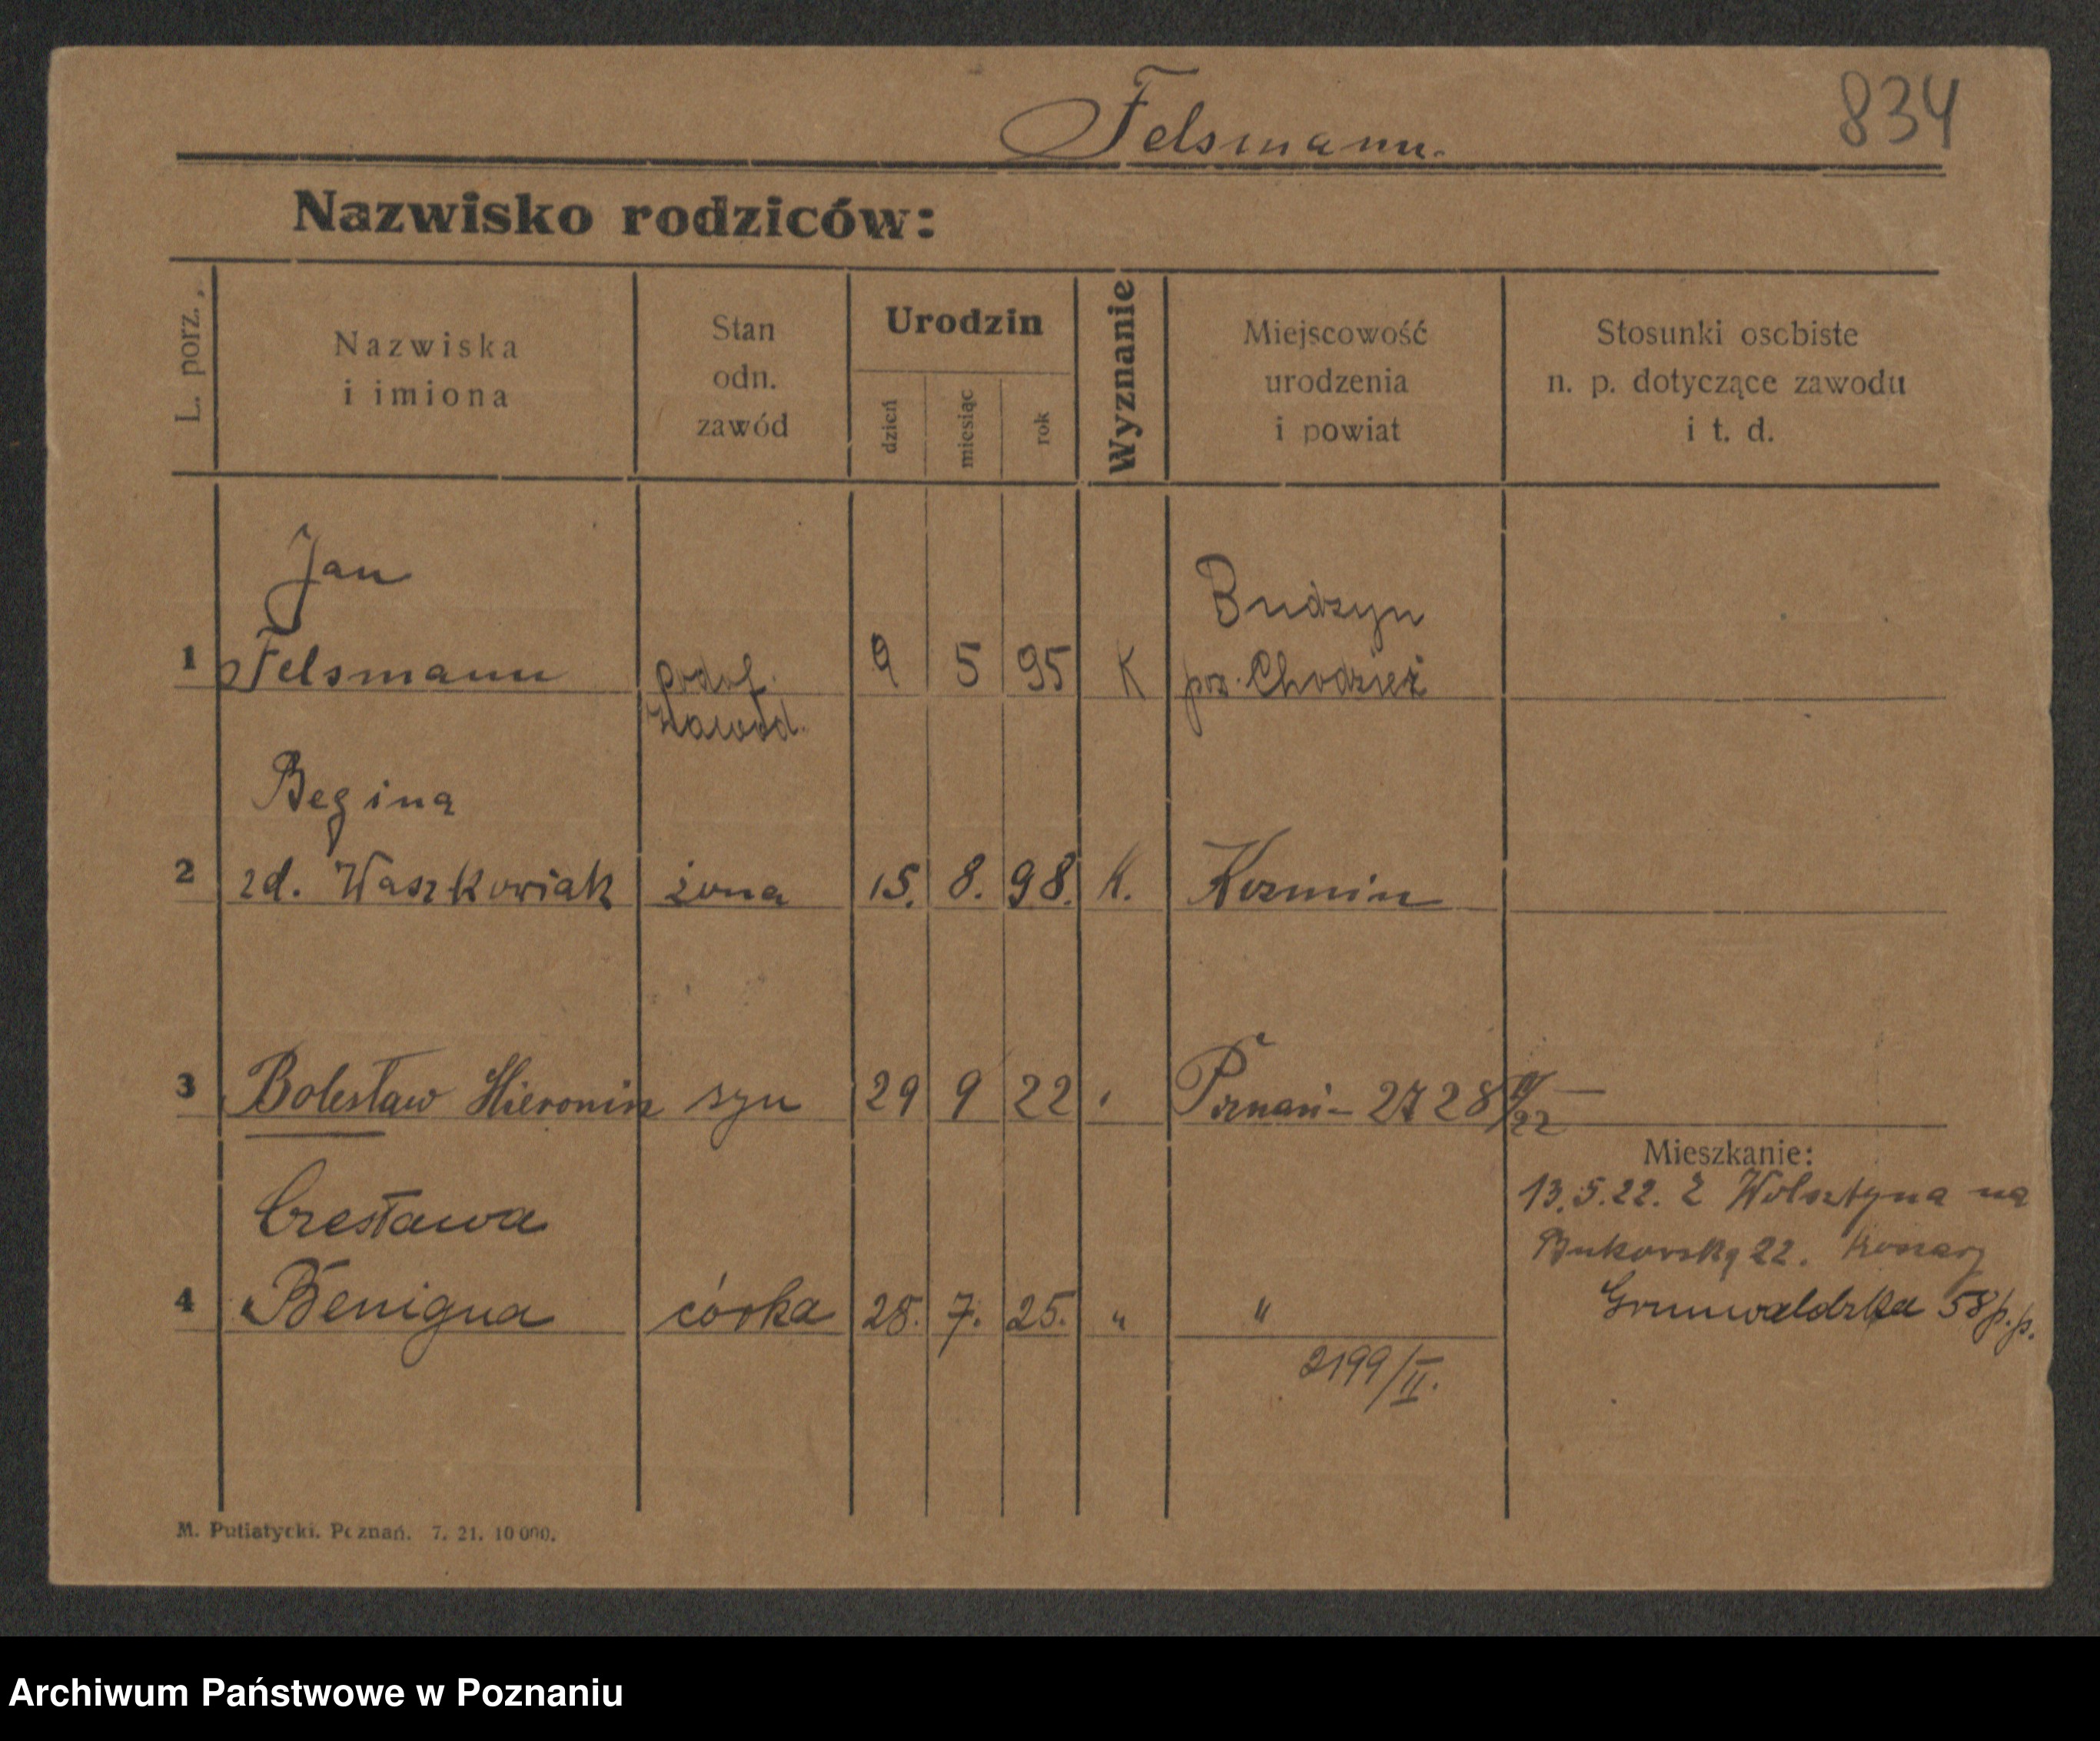 Felsmann.
834
Nazwisko rodziców:
L. porz.
Nazwiska
i imiona
Stan
odn.
zawód
Urodzin
dzień
miesiąc
rok
Wyznanie
Miejscowość
urodzenia
i powiat
Stosunki osobiste
n. p. dotyczące zawodu
i t. d.
Jan
Budzyn
1 Felsmann podof. 9 5 95 K pow. Chodzież
zawod.
Regina
2 zd. Waszkowiak żona 15. 8. 98. K. Kozmin
3 Bolesław Hieronim syn 29 9 22 " Poznań - 2728 IV/22 —
Mieszkanie:
13.5.22. Z Wolsztyna na
Bukowską 22. Koszary
Grunwaldzka 58 p.p.
Czesława
4 Benigna córka 28. 7. 25. " "
2199/II.
M. Putiatycki. Poznań. 7. 21. 10 000.
Archiwum Państwowe w Poznaniu